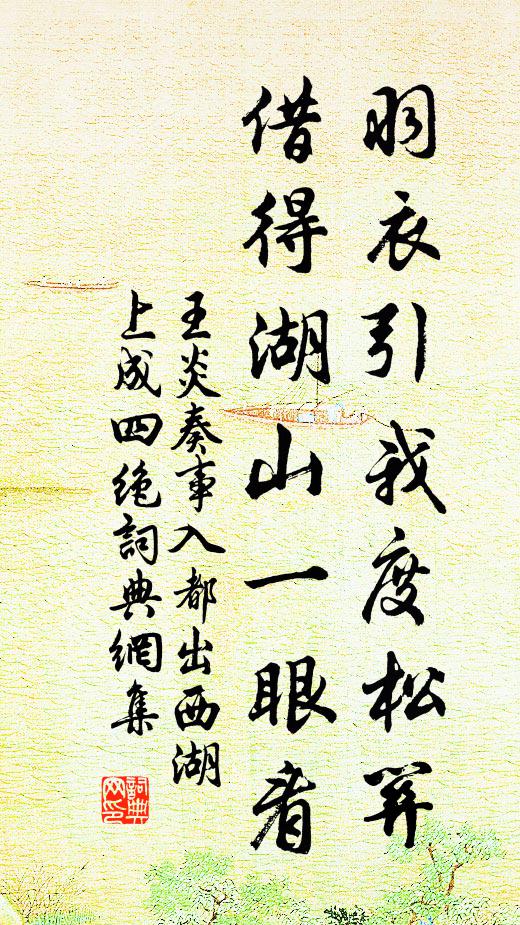 羽衣引我度松關
借得湖山一眼看
王炎奏事入都出西湖
上成四絶詞典網集
詞典網印